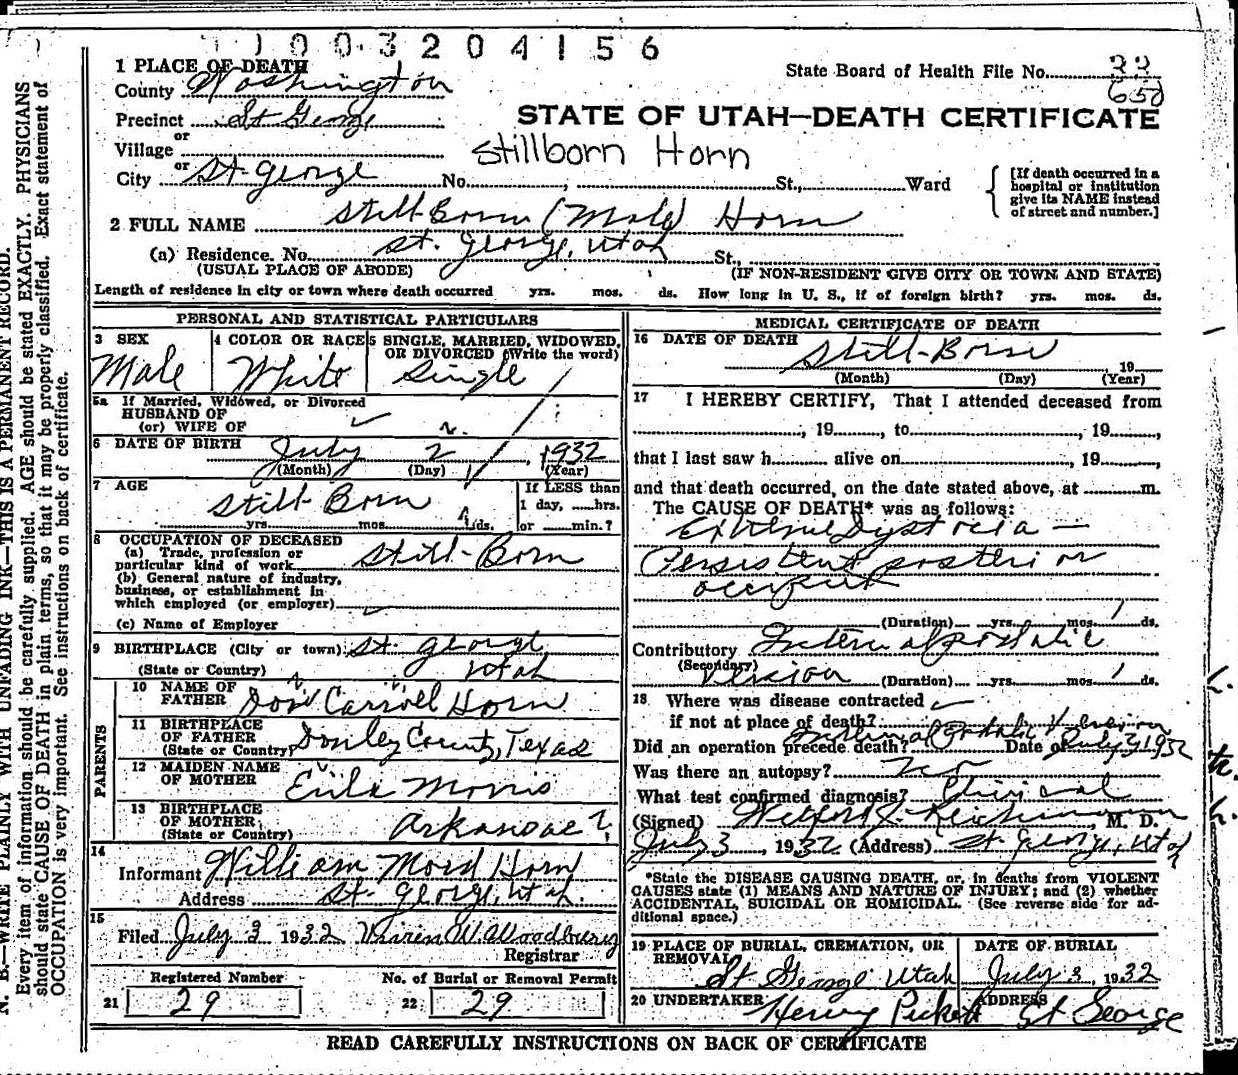 1003204156
1 PLACE OF DEATH
County Washington
State Board of Health File No. 33
650
Precinct St George
STATE OF UTAH—DEATH CERTIFICATE
or
Village
Stillborn Horn
or
City St. George No. , St., Ward
[If death occurred in a hospital or institution give its NAME instead of street and number.]
2 FULL NAME Still Born (Male) Horn
(a) Residence. No. St. George, Utah St.,
(USUAL PLACE OF ABODE) (IF NON-RESIDENT GIVE CITY OR TOWN AND STATE)
Length of residence in city or town where death occurred yrs. mos. ds. How long in U. S., if of foreign birth? yrs. mos. ds.
PERSONAL AND STATISTICAL PARTICULARS
3 SEX
Male
4 COLOR OR RACE
White
5 SINGLE, MARRIED, WIDOWED,
OR DIVORCED (Write the word)
Single
5a If Married, Widowed, or Divorced
HUSBAND OF
(or) WIFE OF
6 DATE OF BIRTH July 2, 1932
(Month) (Day) (Year)
7 AGE
Still Born
yrs. mos. ds.
If LESS than
1 day, hrs.
or min.?
8 OCCUPATION OF DECEASED
(a) Trade, profession or
particular kind of work Still-Born
(b) General nature of industry,
business, or establishment in
which employed (or employer)
(c) Name of Employer
9 BIRTHPLACE (City or town) St. George
(State or Country) Utah
PARENTS
10 NAME OF
FATHER Carroll Horn
11 BIRTHPLACE
OF FATHER
(State or Country) Donley County, Texas
12 MAIDEN NAME
OF MOTHER Morris
13 BIRTHPLACE
OF MOTHER
(State or Country) Arkansas ?
14
Informant William Horn
Address St. George, Utah.
15
Filed July 3 1932 W. Woodbury
Registrar
Registered Number
21 29
No. of Burial or Removal Permit
22 29
MEDICAL CERTIFICATE OF DEATH
16 DATE OF DEATH
Still-Born 19
(Month) (Day) (Year)
17 I HEREBY CERTIFY, That I attended deceased from
, 19 , to , 19 ,
that I last saw h alive on , 19 ,
and that death occurred, on the date stated above, at m.
The CAUSE OF DEATH* was as follows:
Extreme Dystocia —
Persistent posterior
occiput
(Duration) yrs. mos. ds.
Contributory Internal podalic
(Secondary) Version
(Duration) yrs. mos. ds.
18 Where was disease contracted
if not at place of death?
Did an operation precede death? Internal Podalic Version Date of July 3, 1932
Was there an autopsy? no
What test confirmed diagnosis? Clinical
(Signed) Wilford J. Reichmann M. D.
July 3, 1932 (Address) St. George, Utah
*State the DISEASE CAUSING DEATH, or, in deaths from VIOLENT
CAUSES state (1) MEANS AND NATURE OF INJURY; and (2) whether
ACCIDENTAL, SUICIDAL OR HOMICIDAL. (See reverse side for ad-
ditional space.)
19 PLACE OF BURIAL, CREMATION, OR
REMOVAL
St George Utah
DATE OF BURIAL
July 3, 1932
20 UNDERTAKER Henry Pickett
ADDRESS St George
READ CAREFULLY INSTRUCTIONS ON BACK OF CERTIFICATE
N. B.—WRITE PLAINLY WITH UNFADING INK—THIS IS A PERMANENT RECORD.
Every item of information should be carefully supplied. AGE should be stated EXACTLY. PHYSICIANS
should state CAUSE OF DEATH in plain terms, so that it may be properly classified. Exact statement of
OCCUPATION is very important. See instructions on back of certificate.